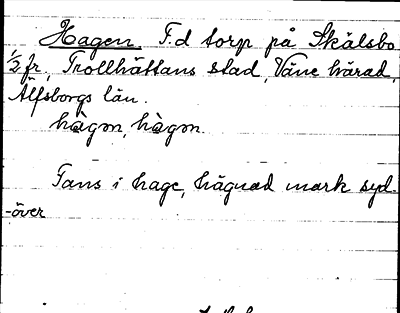 Hagen. F.d torp på Skälsbo
1/2 fr., Trollhättans stad, Väne härad,
Älfsborgs län.
hàgon, hàgon.
Fans i hage, hägnad mark syd-
-över